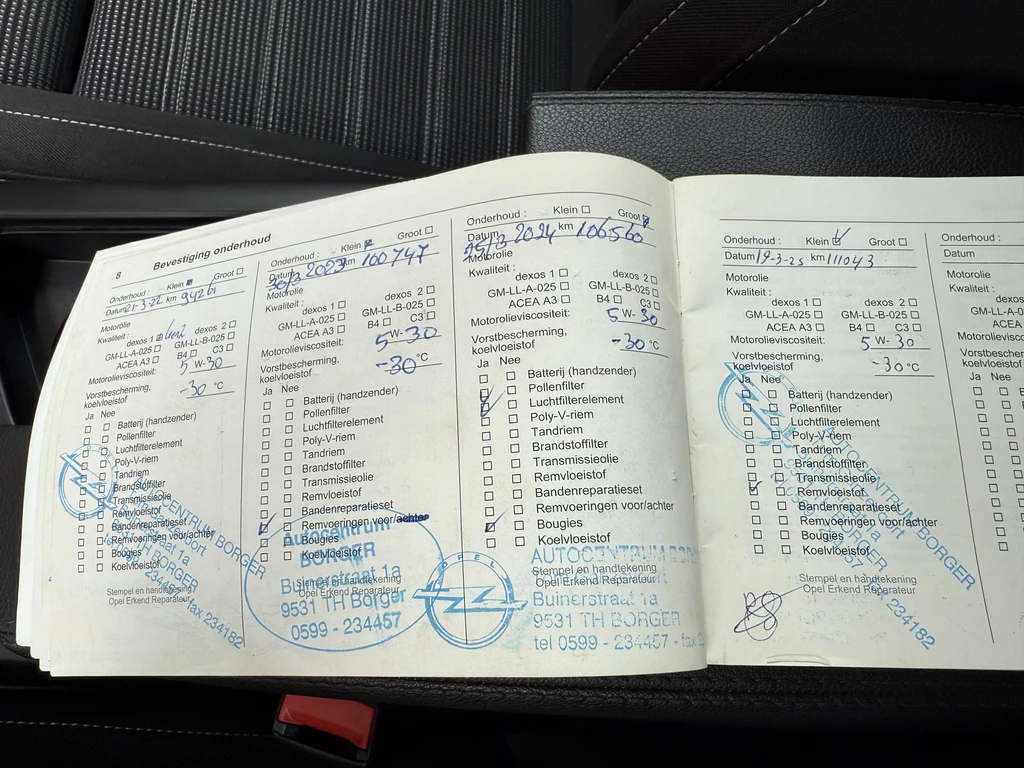 8 Bevestiging onderhoud
Onderhoud : Klein Groot
Datum 21-3-22 km 94261
Motorolie
Kwaliteit : dexos 1 dexos 2
GM-LL-A-025 GM-LL-B-025
ACEA A3 B4 C3
Motorolieviscositeit: 5 W-30
Vorstbescherming,
koelvloeistof -30 °C
Ja Nee
Batterij (handzender)
Pollenfilter
Luchtfilterelement
Poly-V-riem
Tandriem
Brandstoffilter
Transmissieolie
Remvloeistof
Bandenreparatieset
Remvoeringen voor/achter
Bougies
Koelvloeistof
Stempel en handtekening
Opel Erkend Reparateur
AUTOCENTRUM BORGER
fax 234182
Onderhoud : Klein Groot
Datum 30/3 2023 km 100747
Motorolie
Kwaliteit : dexos 1 dexos 2
GM-LL-A-025 GM-LL-B-025
ACEA A3 B4 C3
Motorolieviscositeit: 5 W-30
Vorstbescherming,
koelvloeistof -30 °C
Ja Nee
Batterij (handzender)
Pollenfilter
Luchtfilterelement
Poly-V-riem
Tandriem
Brandstoffilter
Transmissieolie
Remvloeistof
Bandenreparatieset
Remvoeringen voor/achter
Bougies
Koelvloeistof
Stempel en handtekening
Opel Erkend Reparateur
Autocentrum
BORGER
Buinerstraat 1a
9531 TH Borger
0599 - 234457
Onderhoud : Klein Groot
Datum 25/3 2024 km 106560
Motorolie
Kwaliteit : dexos 1 dexos 2
GM-LL-A-025 GM-LL-B-025
ACEA A3 B4 C3
Motorolieviscositeit: 5 W-30
Vorstbescherming,
koelvloeistof -30 °C
Ja Nee
Batterij (handzender)
Pollenfilter
Luchtfilterelement
Poly-V-riem
Tandriem
Brandstoffilter
Transmissieolie
Remvloeistof
Bandenreparatieset
Remvoeringen voor/achter
Bougies
Koelvloeistof
Stempel en handtekening
Opel Erkend Reparateur
OPEL
AUTOCENTRUM BORGER
Buinerstraat 1a
9531 TH BORGER
tel 0599 - 234457 - fax
Onderhoud : Klein Groot
Datum 19-3-25 km 111043
Motorolie
Kwaliteit :
dexos 1 dexos 2
GM-LL-A-025 GM-LL-B-025
ACEA A3 B4 C3
Motorolieviscositeit: 5 W- 30
Vorstbescherming,
koelvloeistof -30 °C
Ja Nee
Batterij (handzender)
Pollenfilter
Luchtfilterelement
Poly-V-riem
Tandriem
Brandstoffilter
Transmissieolie
Remvloeistof
Bandenreparatieset
Remvoeringen voor/achter
Bougies
Koelvloeistof
Stempel en handtekening
Opel Erkend Reparateur
AUTOCENTRUM BORGER
fax 234182
Onderhoud :
Datum
Motorolie
Kwaliteit :
GM-LL-A
ACEA
Motorolieviscos
Vorstbescherm
koelvloeistof
Ja Nee